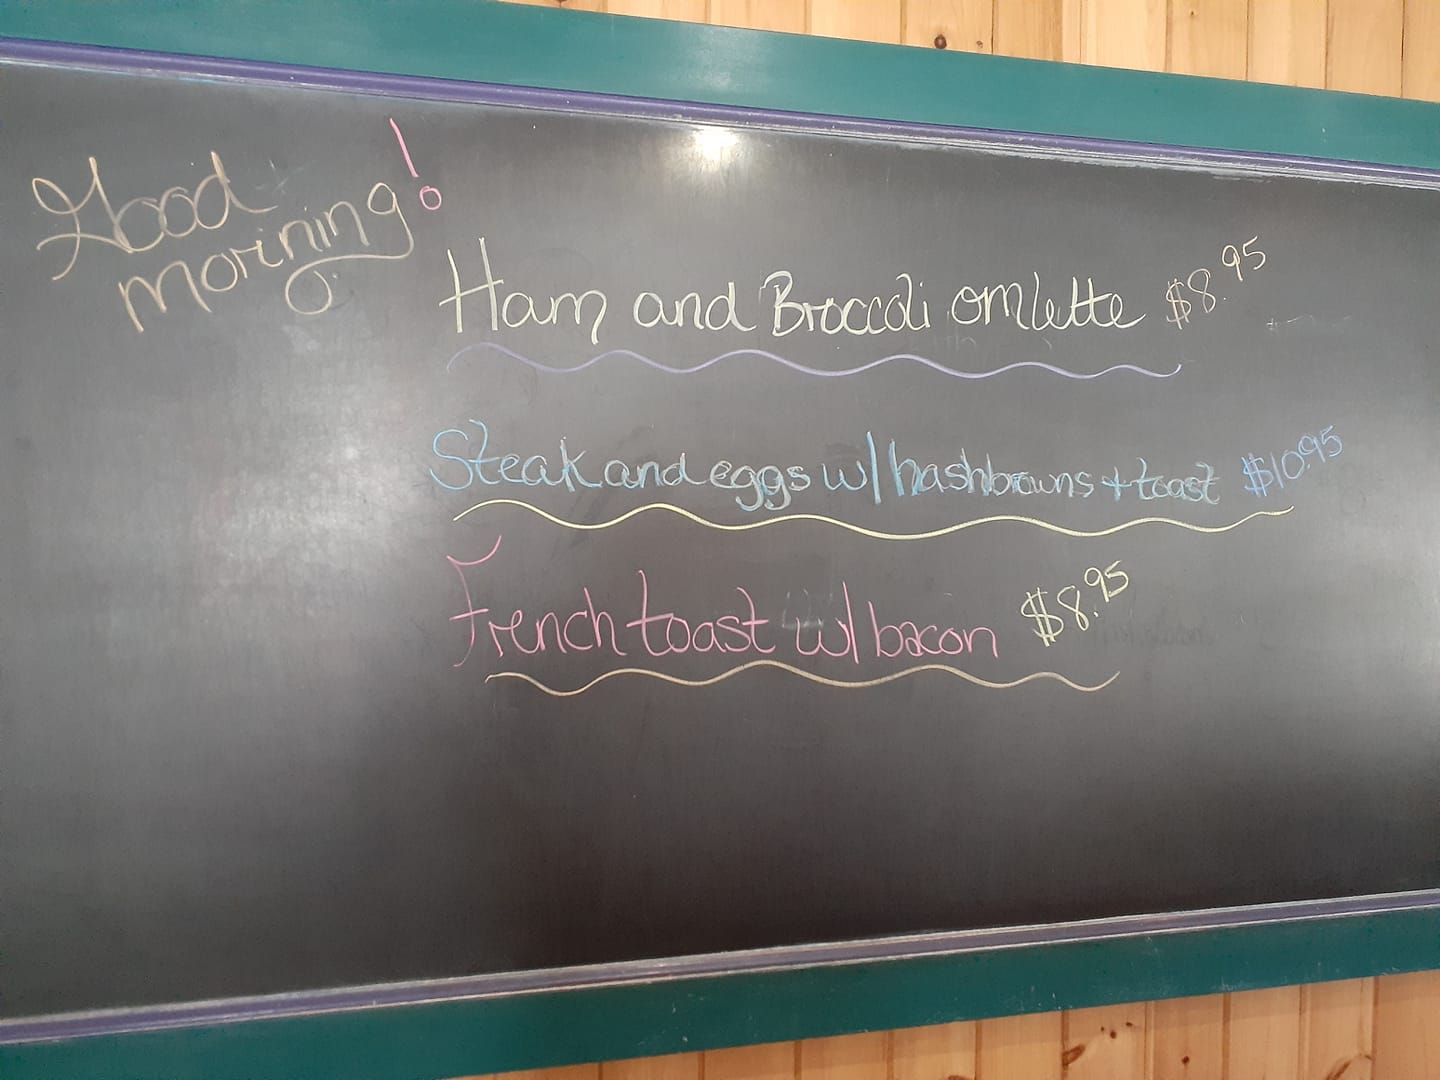 Good
morning!
Ham and Broccoli omlette $8.95
Steak and eggs w/ hashbrowns + toast $10.95
French toast w/ bacon $8.95